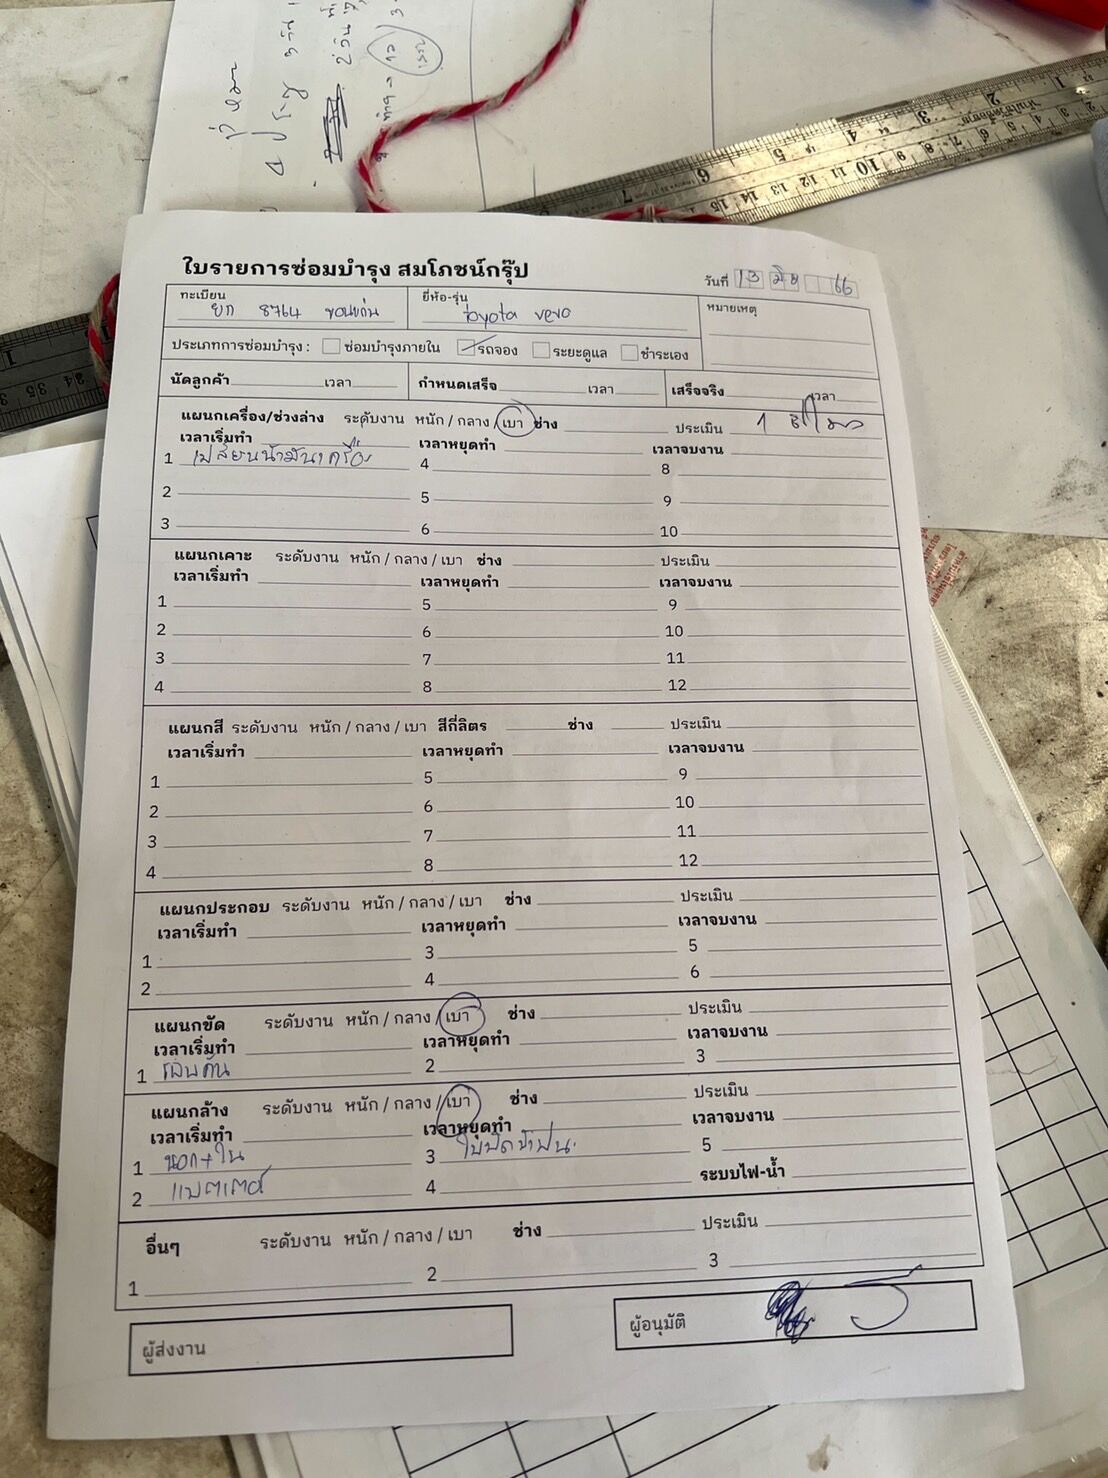 ใบรายการซ่อมบำรุง สมโภชน์กรุ๊ป
วันที่ 13 มิย 66
ทะเบียน ยีห้อ-รุ่น หมายเหตุ
ยก 8764 ขอนแก่น toyota revo
ประเภทการซ่อมบำรุง : ซ่อมบำรุงภายใน รถจอง ระยะดูแล ชำระเอง
นัดลูกค้า เวลา กำหนดเสร็จ เวลา เสร็จจริง เวลา
แผนกเครื่อง/ช่วงล่าง ระดับงาน หนัก / กลาง / เบา ช่าง ประเมิน 1
เวลาเริ่มทำ เวลาหยุดทำ เวลาจบงาน
1 เปลี่ยนน้ำมันเครื่อง 4 8
2 5 9
3 6 10
แผนกเคาะ ระดับงาน หนัก / กลาง / เบา ช่าง ประเมิน
เวลาเริ่มทำ เวลาหยุดทำ เวลาจบงาน
1 5 9
2 6 10
3 7 11
4 8 12
แผนกสี ระดับงาน หนัก / กลาง / เบา สีกี่ลิตร ช่าง ประเมิน
เวลาเริ่มทำ เวลาหยุดทำ เวลาจบงาน
1 5 9
2 6 10
3 7 11
4 8 12
แผนกประกอบ ระดับงาน หนัก / กลาง / เบา ช่าง ประเมิน
เวลาเริ่มทำ เวลาหยุดทำ เวลาจบงาน
1 3 5
2 4 6
แผนกขัด ระดับงาน หนัก / กลาง / เบา ช่าง ประเมิน
เวลาเริ่มทำ เวลาหยุดทำ เวลาจบงาน
1 รอบคัน 2 3
แผนกล้าง ระดับงาน หนัก / กลาง / เบา ช่าง ประเมิน
เวลาเริ่มทำ เวลาหยุดทำ เวลาจบงาน
1 นอก+ใน 3 ใบปัดน้ำฝน 5
2 แบตเตอรี่ 4 ระบบไฟ-น้ำ
อื่นๆ ระดับงาน หนัก / กลาง / เบา ช่าง ประเมิน
1 2 3
ผู้ส่งงาน ผู้อนุมัติ